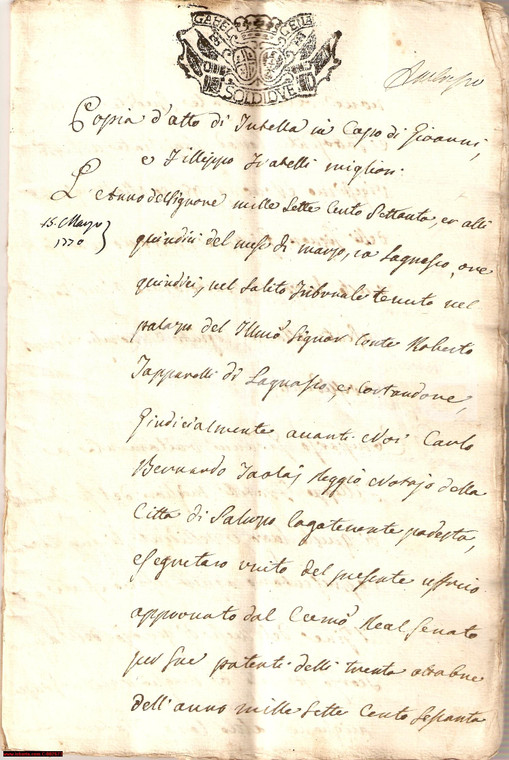 GABEL GENLI
SOLDI DVE
Copia d'atto di Tutella in Capo di Gioanni,
e Fillippo fratelli miglior.
L'Anno del Signore mille Sette Cento Settanta, et alli
15. Marzo
1770
quindici del mese di marzo, in Lagnasco, ore
quindici, nel Solito Tribunale tenuto nel
palazo del Illmo Signor Conte Roberto
Tapparelli di Lagnasco, e Costandone,
Giudicialmente avanti Noi Carlo
Bernardo Reggio Notajo della
Città di Saluzo Logotenente podestà,
e Segretaro unito del presente ufficio
approvato dal Eccmo Real Senato
per Sue patenti delli trenta ottobre
dell'anno mille Sette Cento Sessanta